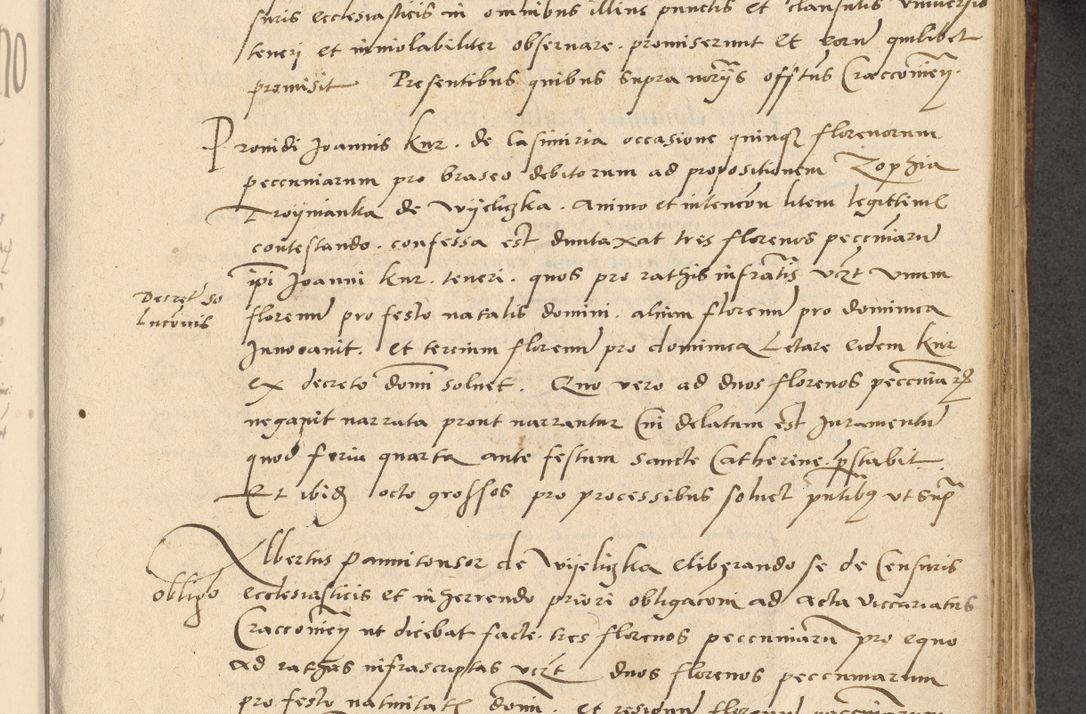 suris ecclesiasticis in omnibus illius punctis et clausulis universis
teneri et inviolabiliter observare. promiserunt et eorum quilibet
promisit Presentibus quibus supra notariis officii Cracoviensis.
Providi Joannis Knr. de Casimiria occasione quinque florenorum
pecuniarum pro braseo debitorum ad propositionem Zophia
Troynianka de Wyeliczka. animo et intencione litem legittime
contestando. confessa est duntaxat tres florenos pecuniarum
ipsi Joanni Knr. teneri. quos pro rathis infrascriptis videlicet unum
Decretum so
lucionis
florenum pro festo natalis domini. alium florenum pro dominica
Invocavit. et tercium florenum pro dominica Letare eidem Knr
ex decreto domini solvet. Quo vero ad duos florenos pecuniarum
negavit narrata prout narrantur Cui delatum est Juramentum
quod feria quarta ante festum sancte Catherine. prestabit.
Et ibidem octo grossos pro processibus solvet presentibus ut supra
Albertus pannitonsor de Wyeliczka eliberando se de Censuris
obligatio
ecclesiasticis et inherendo priori obligacioni ad acta vicariatus
Cracoviensis ut dicebat facte. tres florenos pecuniarum pro equo
ad rathas infrascriptas videlicet duos florenos pecuniarum
pro festo nativitatis domini. et residuum florenum pecuniarum